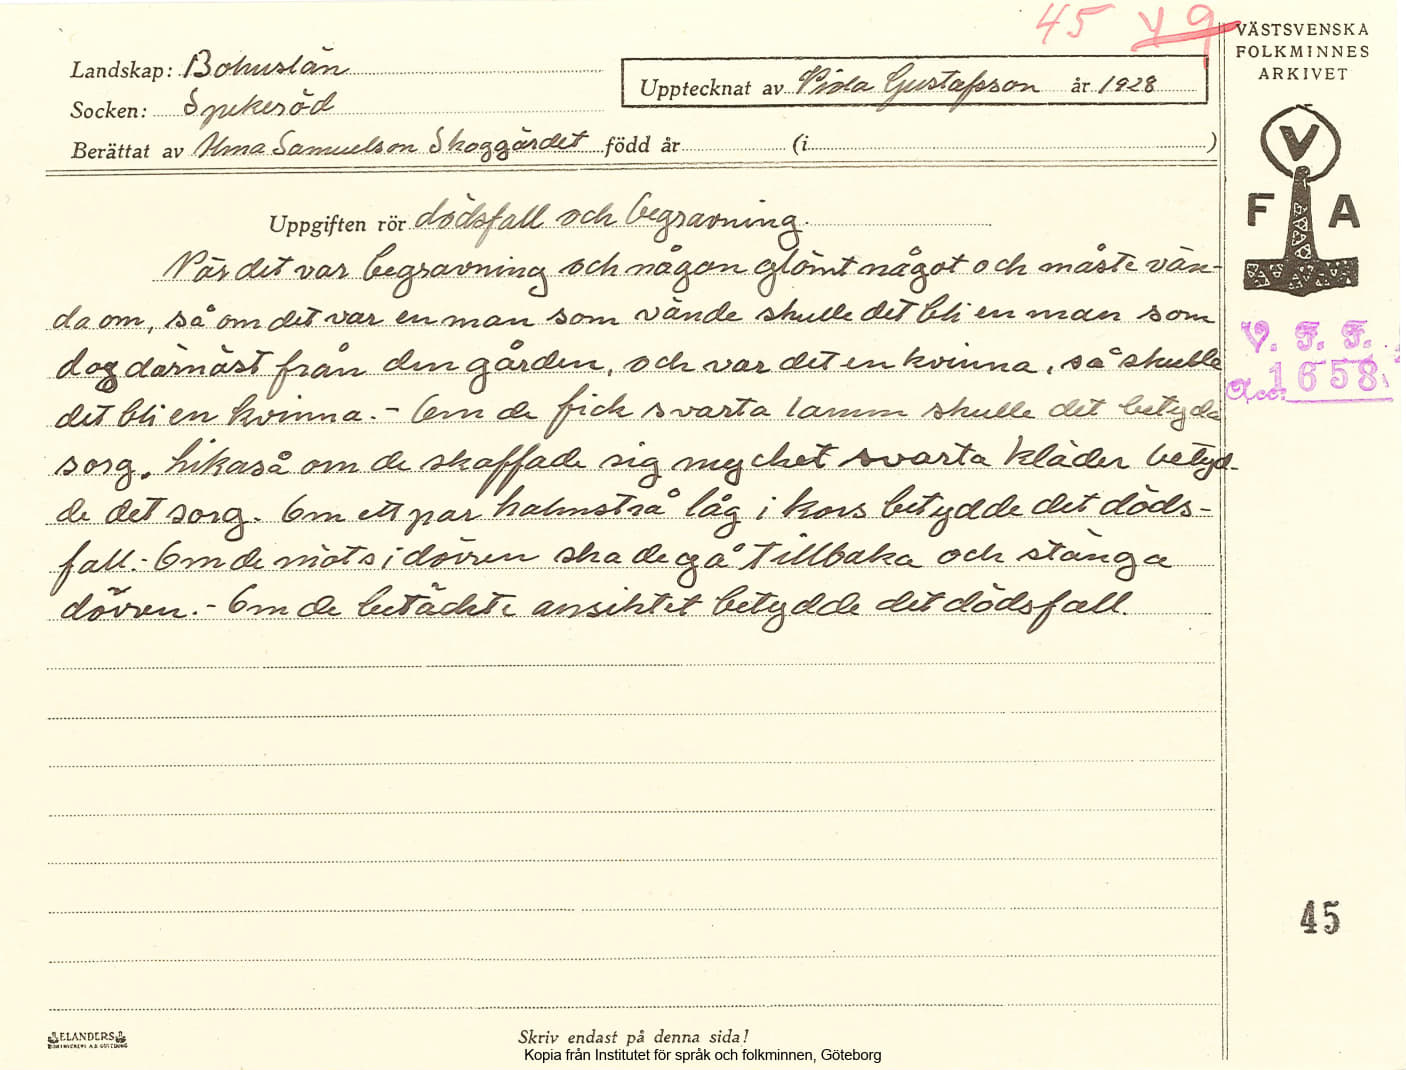 45 49
VÄSTSVENSKA
FOLKMINNES
ARKIVET
Landskap: Bohuslän
Upptecknat av Viola Gustafsson år 1928
Socken: Spekeröd
Berättat av Alma Samuelson Skoggärdet född år (i )
V
F A
Uppgiften rör dödsfall och begravning.
När det var begravning och någon glömt något och måste vän-
da om, så om det var en man som vände skulle det bli en man som
dog därnäst från den gården, och var det en kvinna, så skulle
det bli en kvinna. - Om de fick svarta lamm skulle det betyda
sorg, likaså om de skaffade sig mycket svarta kläder betyd-
de det sorg. Om ett par halmstrå låg i kors betydde det döds-
fall. - Om de möts i dörren ska de gå tillbaka och stänga
dörren. - Om de betäckte ansiktet betydde det dödsfall.
V. F. F.
Acc. 1658.
45
ELANDERS
Skriv endast på denna sida!
Kopia från Institutet för språk och folkminnen, Göteborg